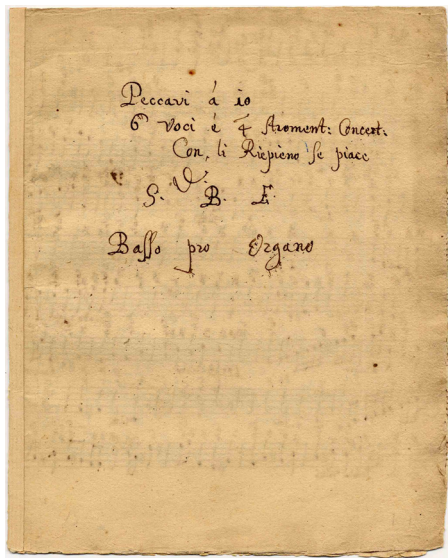 Peccavi á 10
6 Voci é 4 Stroment: Concert:
Con, li Riepieno se piace
V.
S. B. F.
Basso pro Organo